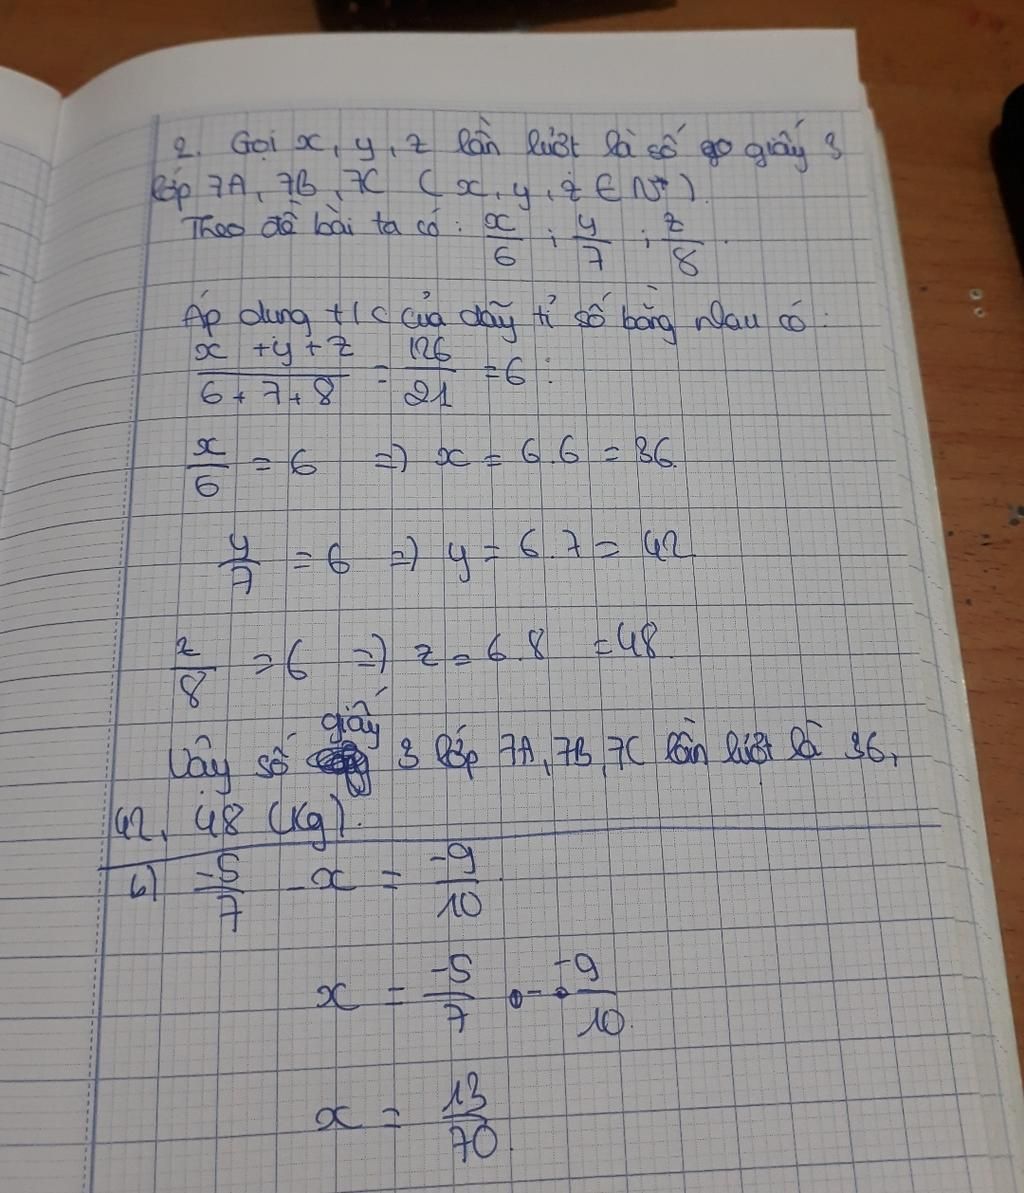 2. Gọi x, y, z lần lượt là số giấy 3
lớp 7A, 7B, 7C (x, y, z ∈ N*)
Theo đề bài ta có: x/6 ; y/7 ; z/8.
Áp dụng t/c của dãy tỉ số bằng nhau có:
x+y+z / 6+7+8 = 126/21 = 6:
x/6 = 6 => x = 6.6 = 36.
y/7 = 6 => y = 6.7 = 42
z/8 = 6 => z = 6.8 = 48.
Vậy số giấy 3 lớp 7A, 7B, 7C lần lượt là 36,
42, 48 (kg).
b) -5/7 - x = -9/10
x = -5/7 - -9/10.
x = 13/70.